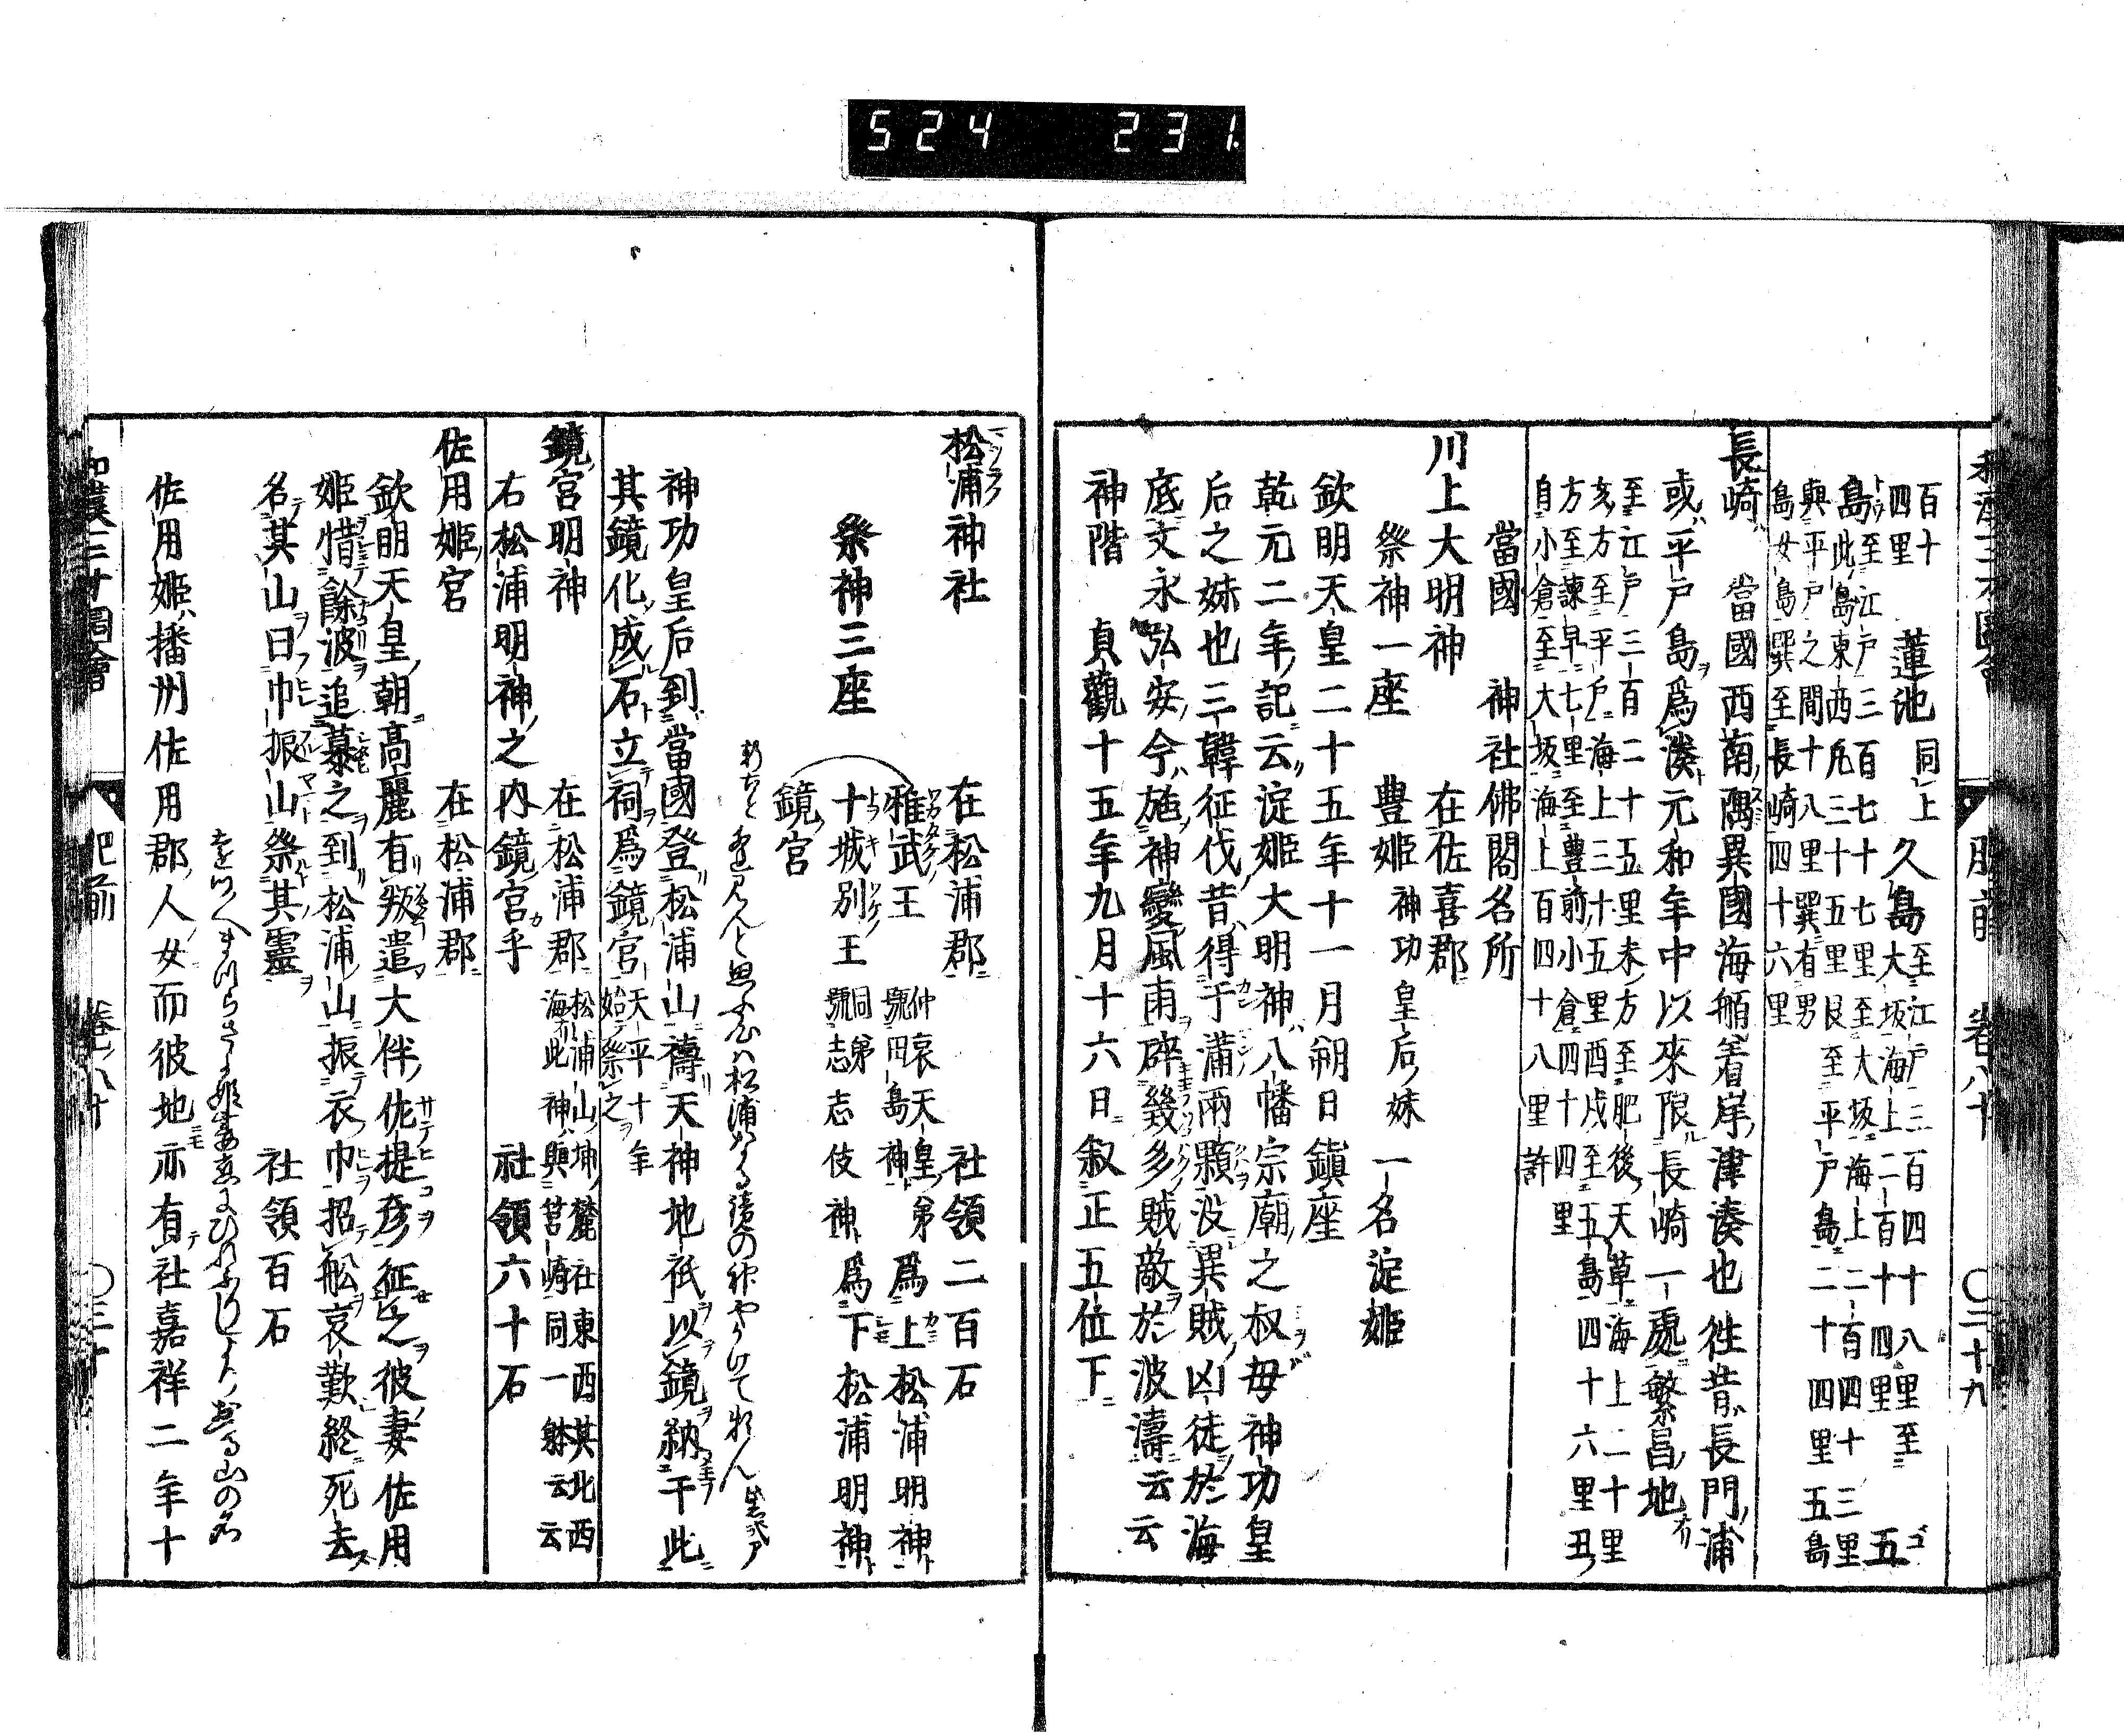 524 231
和漢三才圖會 肥前 卷八十 〇三十九
百十
四里 蓮池 同上 久島 至江戸三百四十八里至
大坂海上二百十四里 五
島 至江戸三百七十七里至大坂海上二百四十三里
此島東西凡三十五里艮至平戸島二十四里五島
與平戸之間十八里巽有男
島女島巽至長崎四十六里
長崎 當國西南隅異國海舶着岸津湊也徃昔長門浦
或平戸島爲湊元和年中以來限長崎一處繁昌地
至江戸三百二十五里未方至肥後天草海上二十里
亥方至平戸海上三十五里酉戌至五島四十六里丑
方至諫早七里至豊前小倉四十四里
自小倉至大坂海上百四十八里許
當國 神社佛閣名所
川上大明神 在佐喜郡
祭神一座 豊姫 神功皇后妹 一名淀姫
欽明天皇二十五年十一月朔日鎮座
乾元二年記云淀姫大明神八幡宗廟之叔母神功皇
后之妹也三韓征伐昔得于滿兩顆没異賊凶徒於海
底文永弘安今施神變風雨碎幾多賊敵於波濤云云
神階 貞觀十五年九月十六日叙正五位下
松浦神社 在松浦郡 社領二百石
祭神三座
雅武王 仲哀天皇弟
號田島神 爲上松浦明神
十城別王 同弟
號志志伎神 爲下松浦明神
鏡宮
神功皇后到當國登松浦山禱天神地祇以鏡納于此
其鏡化成石立祠爲鏡宮 天平十年
始祭之
鏡宮明神 在松浦郡 松浦山坤麓社東西其北西
海此神與筥崎同一躰云云
右松浦明神之内鏡宮乎 社領六十石
佐用姫宮 在松浦郡
欽明天皇朝高麗有叛遣大伴佐提彦征之彼妻佐用
姫惜餘波追慕之到松浦山振衣巾招舩哀歎終死去
名其山曰巾振山祭其靈 社領百石
佐用姫播州佐用郡人女而彼地亦有社嘉祥二年十
和漢三才圖會 肥前 卷八十 〇三十